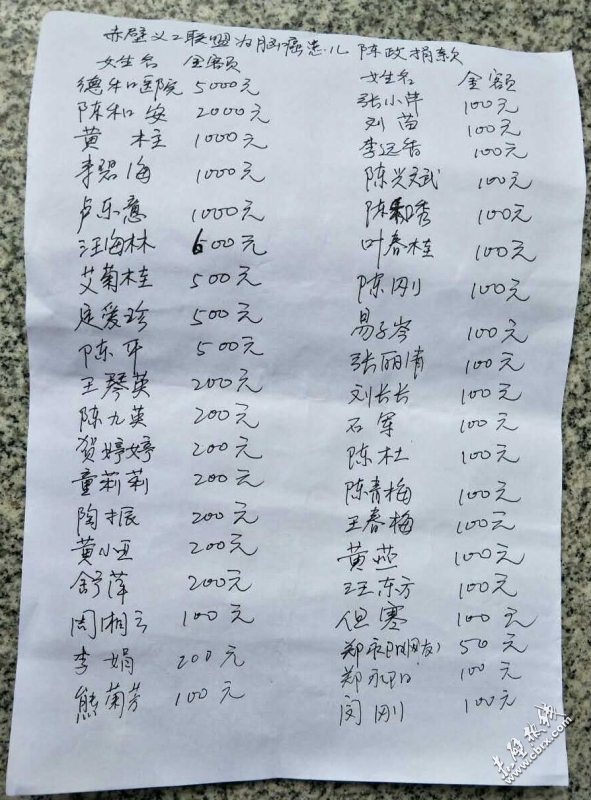 赤壁义工联盟为脑瘫患儿 陈政捐款
女生名 金额
德和医院 5000元
陈和安 2000元
黄桂 1000元
李碧海 1000元
卢乐意 1000元
汪海林 600元
艾菊桂 500元
爱珍 500元
陈平 500元
王琴英 200元
陈九英 200元
贺婷婷 200元
童莉莉 200元
陶振 200元
黄小亚 200元
舒萍 200元
周湘云 100元
李娟 200元
熊菊芳 100元
女生名 金额
张小萍 100元
刘苗 100元
李远香 100元
陈兴斌 100元
陈和秀 100元
叶春桂 100元
陈刚 100元
易子岑 100元
张丽倩 100元
刘长长 100元
石军 100元
陈杜 100元
陈青梅 100元
王春梅 100元
黄燕 100元
汪东方 100元
但寒 100元
郑永阳(朋友) 50元
郑永阳 100元
闵刚 100元
赤壁热线
www.cbrx.com